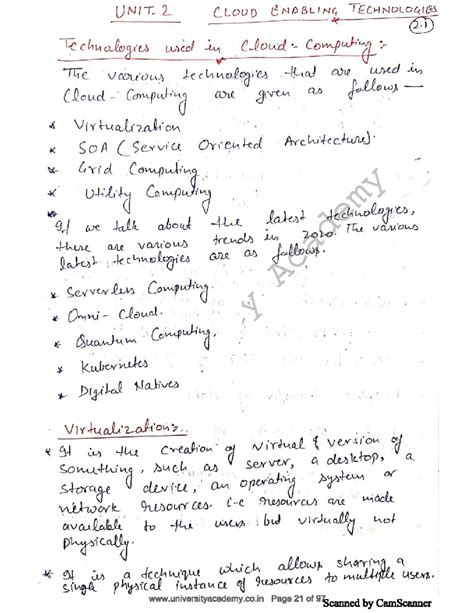 UNIT-2 CLOUD ENABLING TECHNOLOGIES
2.1
Technologies used in Cloud-Computing:-
The various technologies that are used in
Cloud-Computing are given as follows—
* Virtualization
* SOA (Service Oriented Architecture).
* Grid Computing
* Utility Computing
*
If we talk about the latest technologies,
there are various trends in 2020. The various
latest technologies are as follows.
* Serverless Computing.
* Omni-Cloud.
* Quantum Computing.
* Kubernetes
* Digital Natives
Virtualization:-
* It is the creation of virtual version of
something, such as server, a desktop, a
storage device, an operating system or
network resources. i-e resources are made
available to the users but virtually not
physically.
* It is a technique which allows sharing a
single physical instance of resources to multiple users.
y Academy
www.universityacademy.co.in Page 21 of 97
Scanned by CamScanner